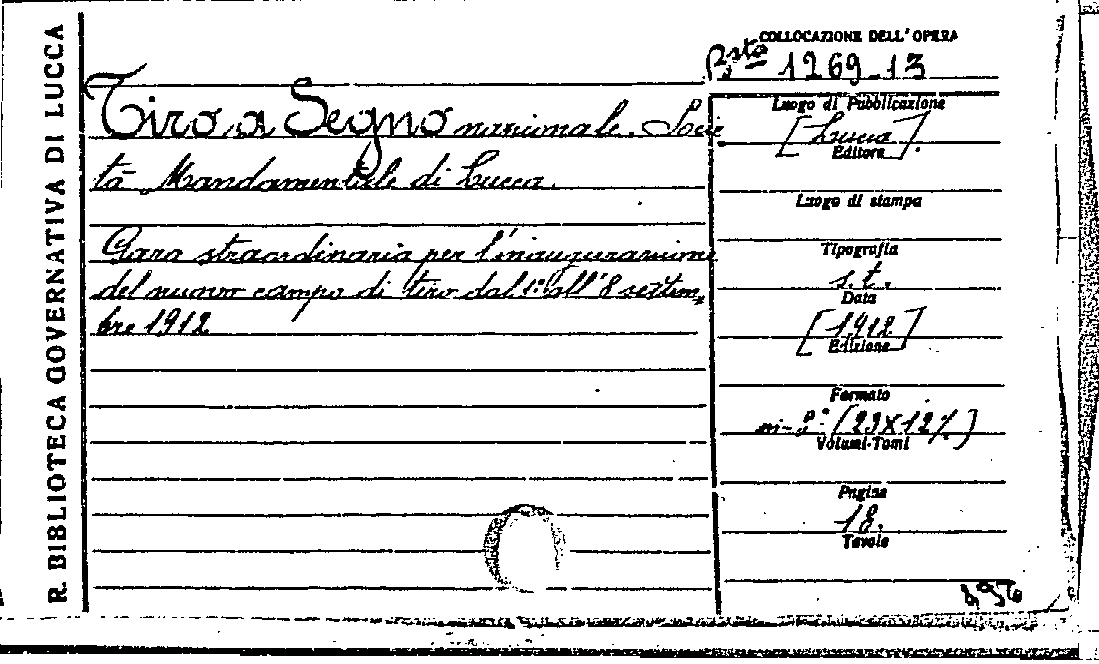 R. BIBLIOTECA GOVERNATIVA DI LUCCA
COLLOCAZIONE DELL'OPERA
Bsta 1269-13
Tiro a Segno nazionale. Socie
tà Mandamentale di Lucca.
Gara straordinaria per l'inaugurazione
del nuovo campo di tiro dal 1° all'8 settem,
bre 1912
Luogo di Pubblicazione
[Lucca].
Editore
Luogo di stampa
Tipografia
s.t.
Data
[1912]
Edizione
Formato
in-8° (23X12½)
Volumi-Tomi
Pagine
18.
Tavole